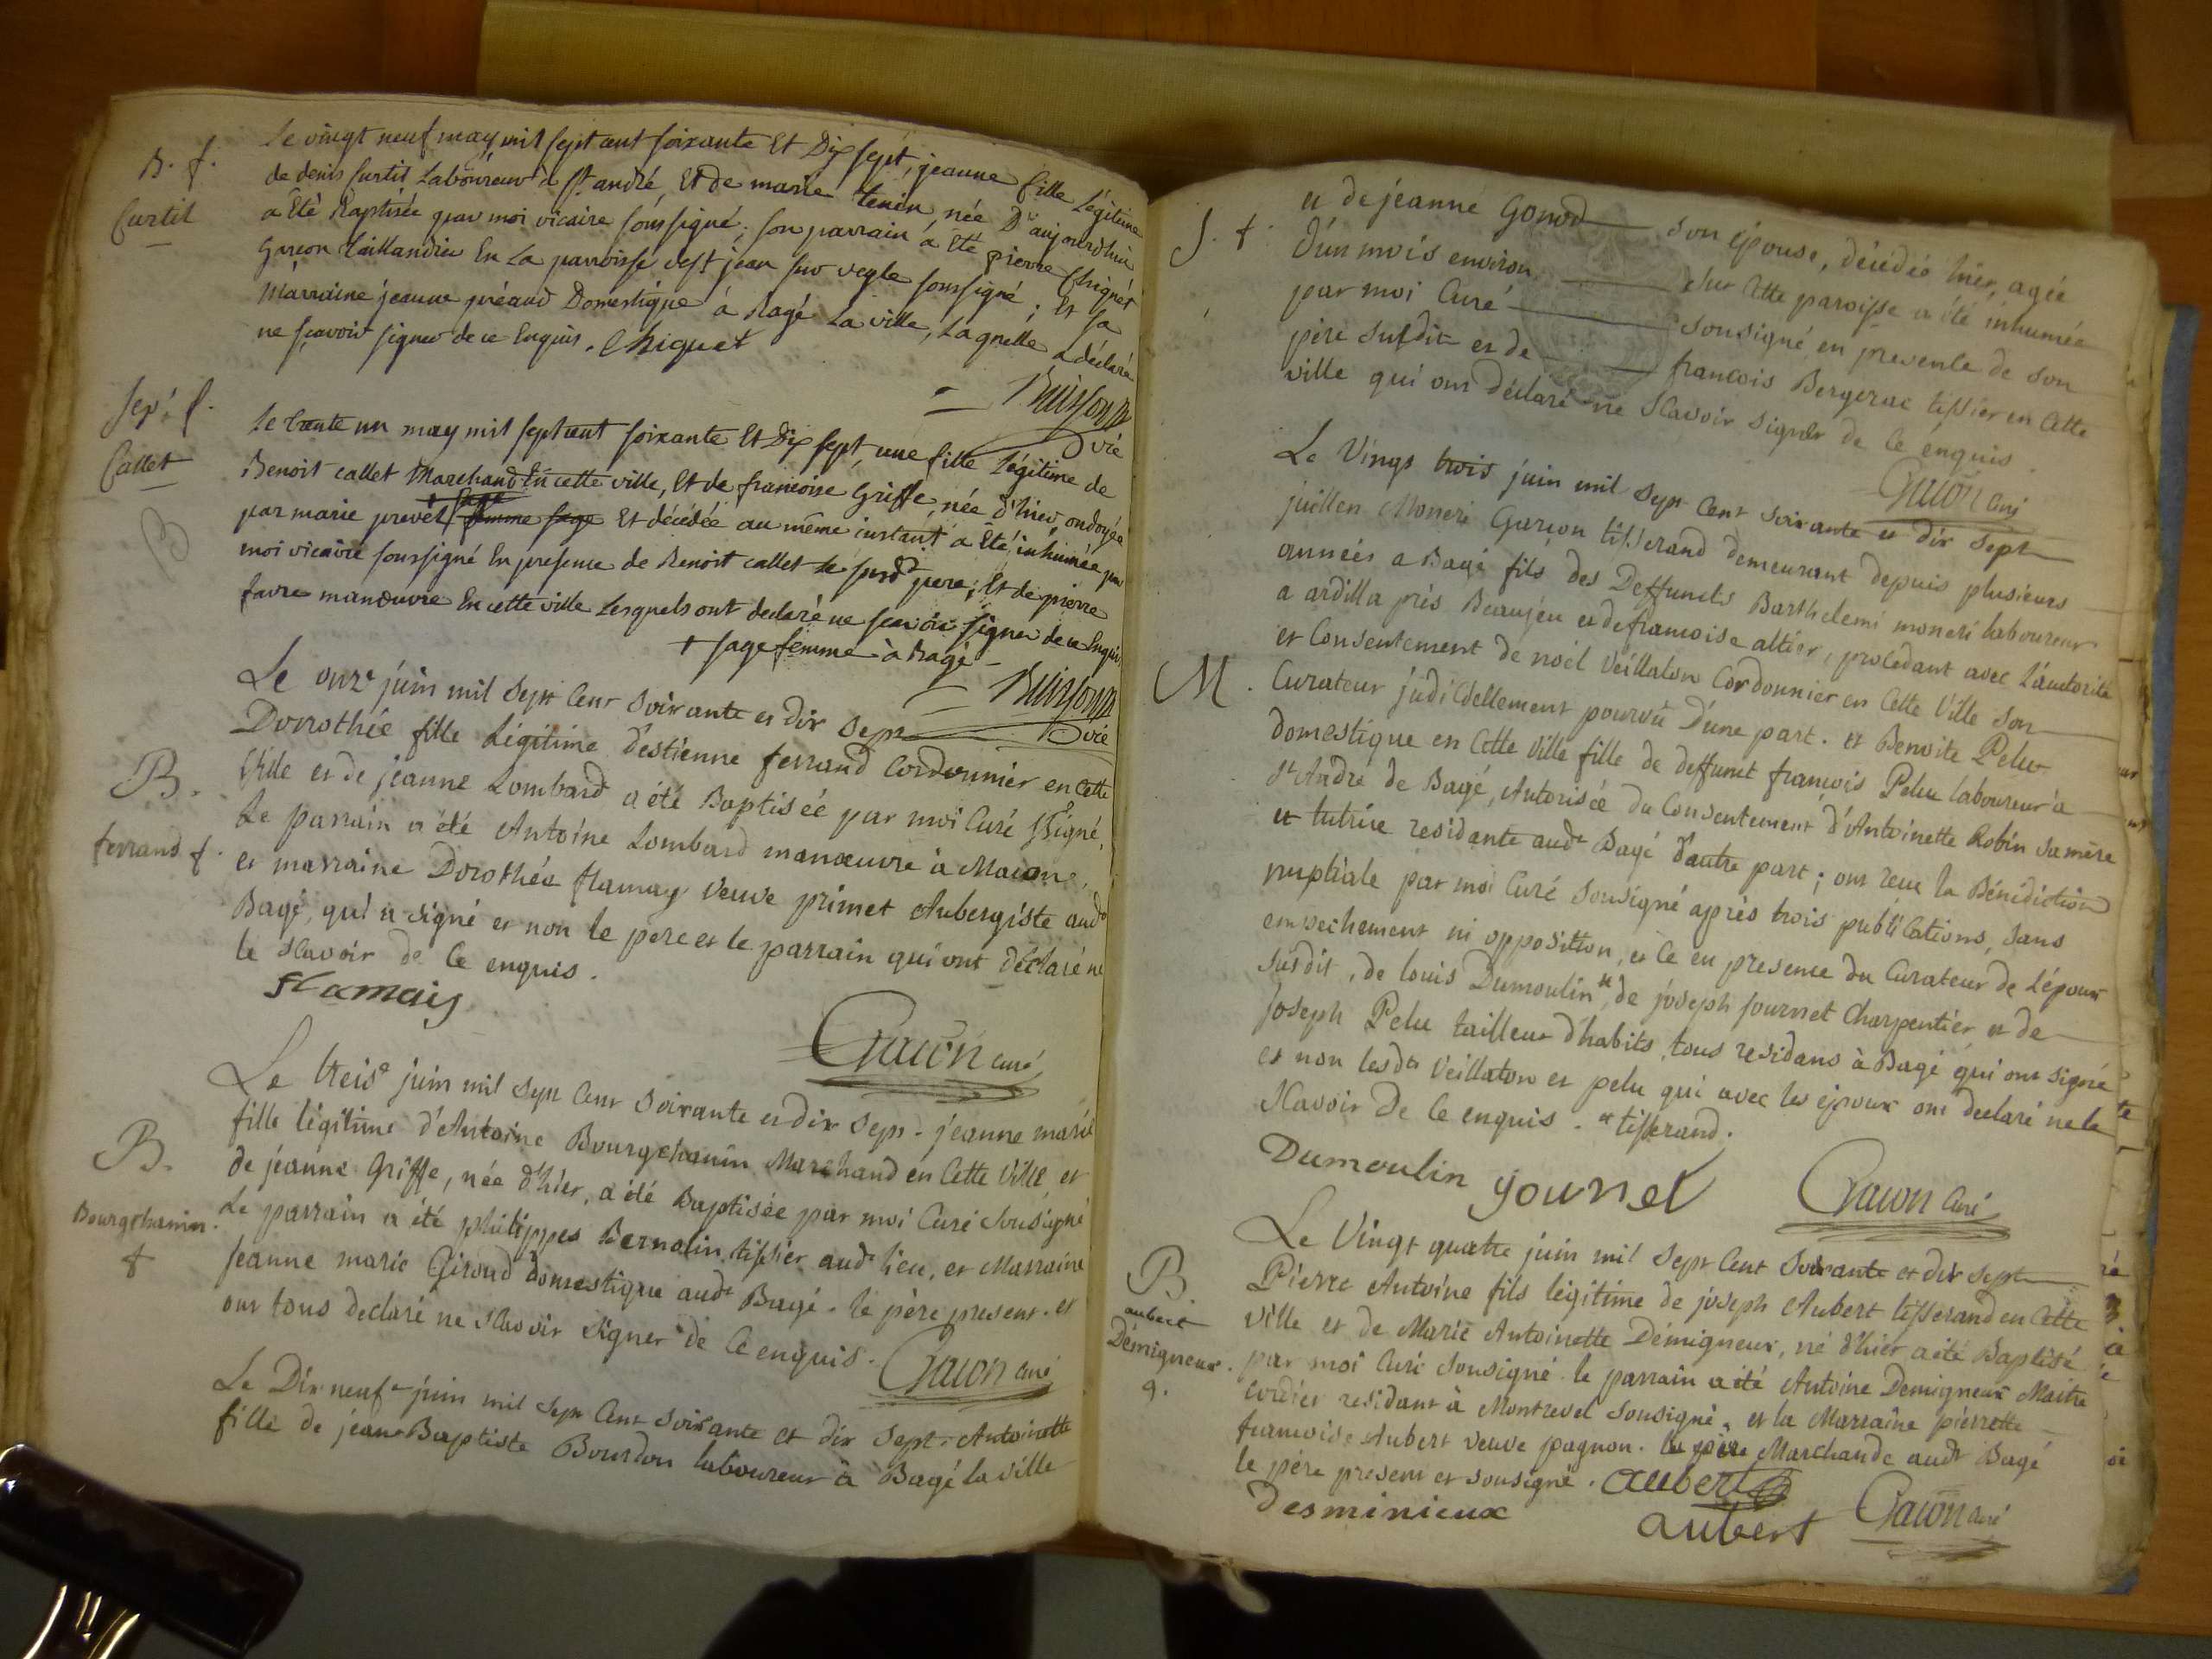 B. f.
Curtil
Le vingt neuf may mil sept cent soixante Et Dix sept, jeanne fille Légitime
de denis Curtil Laboureur à st andré, Et de marie tenin née D'aujourd'huy
a Eté Baptisée par moi vicaire soussigné; son parrain a Eté pierre Chiquet
Garcon Taillandier En La parroisse de st jean sur veyle soussigné; Et sa
Marraine jeanne préaud Domestique à Bagé La ville, Laquelle a déclaré
ne sçavoir signer de ce Enquis. Chiquet
Buisson
vic
Sep. f.
Callet
Le trente un may mil sept cent soixante Et Dix sept, une fille Légitime de
Benoit callet Marchand En cette ville, Et de francoise Griffe, née d'hier, ondoyée
par marie prevel femme sage Et décédée au même instant a Eté inhumée par
moi vicaire soussigné En presence de Benoit callet le susdt pere; Et de pierre
favre manœuvre En cette ville Lesquels ont declaré ne scavoir signer de ce Enquis
+ sage femme à Bagé
Buisson
vic
B.
ferrand f.
Le onze juin mil Sept Cent Soixante et dix Sept
Dorothée fille Légitime d'estienne ferrand Cordonnier en Cette
Ville et de jeanne Lombard a été Baptisée par moi Curé ssigné,
Le parrain a été Antoine Lombard manœuvre à Macon,
et marraine Dorothée flamay veuve primet Aubergiste audt
Bagé, qui a signé et non le pere et le parrain qui ont déclaré ne
le scavoir de Ce enquis.
flamais
Gacon curé
B.
Bourgchanin
f
Le treise juin mil Sept Cent Soixante et dix Sept. jeanne marie
fille légitime d'Antoine Bourgchanin Marchand en Cette Ville et
de jeanne Griffe, née d'hier, a été Baptisée par moi Curé Sousigné
Le parrain a été philippes Bernolin tissier audt lieu, et Marraine
Jeanne marie Giroud domestique audt Bagé. le père present. et
ont tous declaré ne scavoir signer de Ce enquis.
Gacon curé
Le Dix neufe juin mil Sept Cent Soixante et dix Sept. Antoinette
fille de jean Baptiste Bourdon laboureur à Bagé la Ville
S. f.
et de jeanne Gonod son épouse, décedée hier, agée
d'un mois environ Sur Cette paroisse a été inhumée
par moi Curé sousigné en presence de son
père susdit et de francois Bergerac tissier en Cette
ville qui ont déclaré ne scavoir signer de Ce enquis.
Gacon curé
M.
Le Vingt trois juin mil Sept Cent Soixante et dix Sept
juillen Moneri Garçon tisserand demeurant depuis plusieurs
années a Bagé fils des Deffuncts Barthelemi moneri laboureur
a ardilla près Beaujeu et de francoise altier, procedant avec L'autorité
et Consentement de noël Veillalon Cordonnier en Cette Ville Son
Curateur judiciellement pourvû D'une part. et Benoite Pelu
domestique en Cette Ville fille de deffunct francois Pelu laboureur à
st André de Bagé, Autorisée du Consentement d'Antoinette Robin sa mère
et tutrice residante audt Bagé d'autre part; ont reçu la Bénédiction
nuptiale par moi Curé Sousigné après trois publications, sans
empechement ni opposition, et Ce en presence du Curateur de L'époux
susdit, de louis Dumoulin, de joseph journet Charpentier et de
Joseph Pelu tailleur d'habits, tous residans à Bagé qui ont signé
et non lesdts Veillalon et pelu qui avec les époux ont declaré ne le
scavoir de Ce enquis. tisserand.
Dumoulin journet
Gacon curé
B.
aubert
Démigneux.
g.
Le Vingt quatre juin mil Sept Cent Soixante et dix Sept
Pierre Antoine fils légitime de joseph Aubert tisserand en Cette
ville et de Marie Antoinette Démigneux, né d'hier a été Baptisé
par moi Curé Sousigné. le parrain a été Antoine Demigneux Maitre
cordier residant à Montrevel sousigné, et la Marraine pierrette
francoise Aubert veuve pagnon. Marchande audt Bagé
le père present et sousigné. aubert
desminieux
aubert
Gacon curé